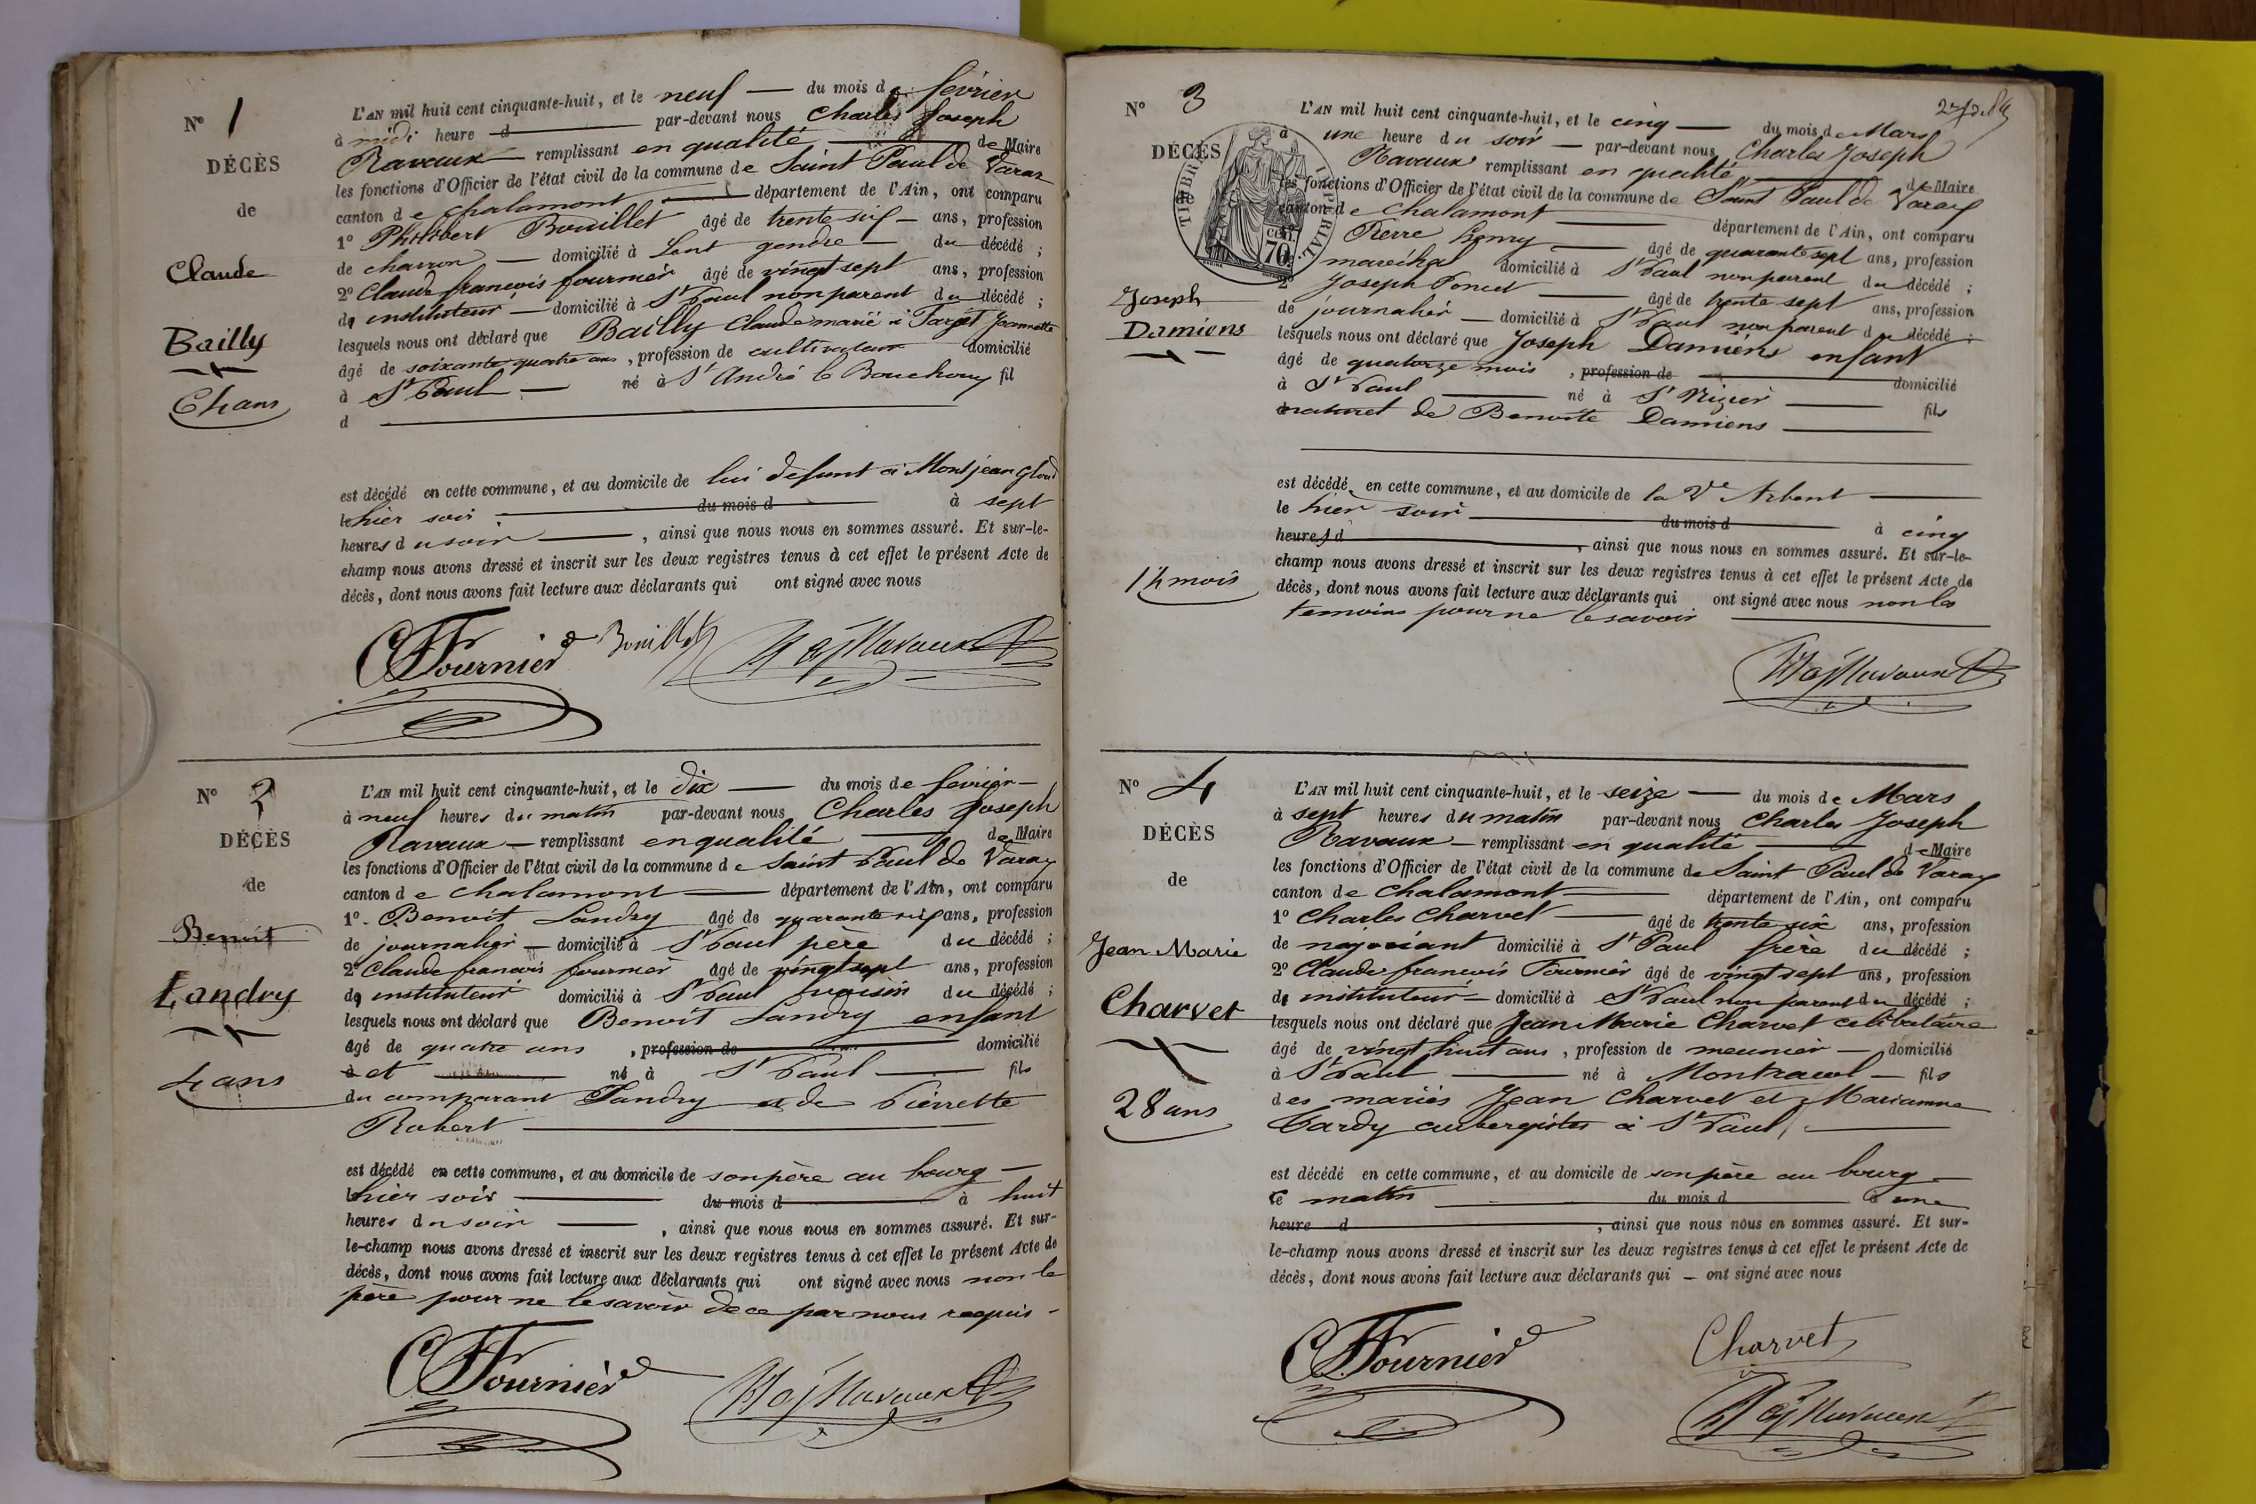 N° 1
DÉCÈS
de
Claude
Bailly
L'AN mil huit cent cinquante-huit, et le neuf du mois de février
à midi heure d par-devant nous Charles Joseph
Ravaux remplissant en qualité de Maire
les fonctions d'Officier de l'état civil de la commune de Saint Paul de Varax
canton de chalamont département de l'Ain, ont comparu
1° Philibert Bouillet âgé de trente six ans, profession
de charron domicilié à Lent gendre du décédé ;
2° Claude francois fournier âgé de vingt sept ans, profession
d' instituteur domicilié à St Paul non parent du décédé ;
lesquels nous ont déclaré que Bailly Claude marié à Farjet Jeannette
âgé de soixante quatre ans, profession de cultivateur domicilié
à St Paul né à St André le Bouchoux fil
d
est décédé en cette commune, et au domicile de lui defunt à Montjean
le hier soir du mois d à sept
heures du soir, ainsi que nous nous en sommes assuré. Et sur-le-
champ nous avons dressé et inscrit sur les deux registres tenus à cet effet le présent Acte de
décès, dont nous avons fait lecture aux déclarants qui ont signé avec nous
CFournier Bouillet Ravaux
N° 2
DÉCÈS
de
Benoit
Landry
4 ans
L'AN mil huit cent cinquante-huit, et le dix du mois de fevrier
à neuf heures du matin par-devant nous Charles Joseph
Ravaux remplissant en qualité de Maire
les fonctions d'Officier de l'état civil de la commune de Saint Paul de Varax
canton de chalamont département de l'Ain, ont comparu
1° Benoit Landry âgé de quarante six ans, profession
de journalier domicilié à St Paul père du décédé ;
2° Claude francois fournier âgé de vingt sept ans, profession
d' instituteur domicilié à St Paul voisin du décédé ;
lesquels nous ont déclaré que Benoit Landry enfant
âgé de quatre ans, profession de domicilié
à et né à St Paul fils
du comparant Landry et de Pierrette
Robert
est décédé en cette commune, et au domicile de son père au bourg
le hier soir du mois d à huit
heures du soir, ainsi que nous nous en sommes assuré. Et sur-
le-champ nous avons dressé et inscrit sur les deux registres tenus à cet effet le présent Acte de
décès, dont nous avons fait lecture aux déclarants qui ont signé avec nous non le
père pour ne le savoir de ce par nous requis
CFournier Ravaux
N° 3
DÉCÈS
Joseph
Damiens
14 mois
TIMBRE IMPÉRIAL
70
L'AN mil huit cent cinquante-huit, et le cinq du mois de Mars
à une heure du soir par-devant nous Charles Joseph
Ravaux remplissant en qualité de Maire
les fonctions d'Officier de l'état civil de la commune de Saint Paul de Varax
canton de chalamont département de l'Ain, ont comparu
Pierre âgé de quarante sept ans, profession
maréchal domicilié à St Paul non parent du décédé ;
2° Joseph Poncet âgé de trente sept ans, profession
de journalier domicilié à St Paul non parent d décédé ;
lesquels nous ont déclaré que Joseph Damiens enfant
âgé de quatorze mois, profession de domicilié
à St Paul né à St Nizier fils
naturel de Benoite Damiens
est décédé en cette commune, et au domicile de la Ve Arbent
le hier soir du mois d à cinq
heures d, ainsi que nous nous en sommes assuré. Et sur-le-
champ nous avons dressé et inscrit sur les deux registres tenus à cet effet le présent Acte de
décès, dont nous avons fait lecture aux déclarants qui ont signé avec nous non les
temoins pour ne le savoir
Ravaux
N° 4
DÉCÈS
de
Jean Marie
Charvet
28 ans
L'AN mil huit cent cinquante-huit, et le seize du mois de Mars
à sept heures du matin par-devant nous Charles Joseph
Ravaux remplissant en qualité de Maire
les fonctions d'Officier de l'état civil de la commune de Saint Paul de Varax
canton de chalamont département de l'Ain, ont comparu
1° Charles Charvet âgé de trente six ans, profession
de négociant domicilié à St Paul frère du décédé ;
2° Claude francois Fournier âgé de vingt sept ans, profession
d' instituteur domicilié à St Paul non parent du décédé ;
lesquels nous ont déclaré que Jean Marie Charvet célibataire
âgé de vingt huit ans, profession de meunier domicilié
à St Paul né à Montracol fils
des mariés Jean Charvet et Marianne
Tardy aubergistes à St Paul
est décédé en cette commune, et au domicile de son père au bourg
ce matin du mois d à une
heure d, ainsi que nous nous en sommes assuré. Et sur-
le-champ nous avons dressé et inscrit sur les deux registres tenus à cet effet le présent Acte de
décès, dont nous avons fait lecture aux déclarants qui ont signé avec nous
CFournier Charvet
Ravaux